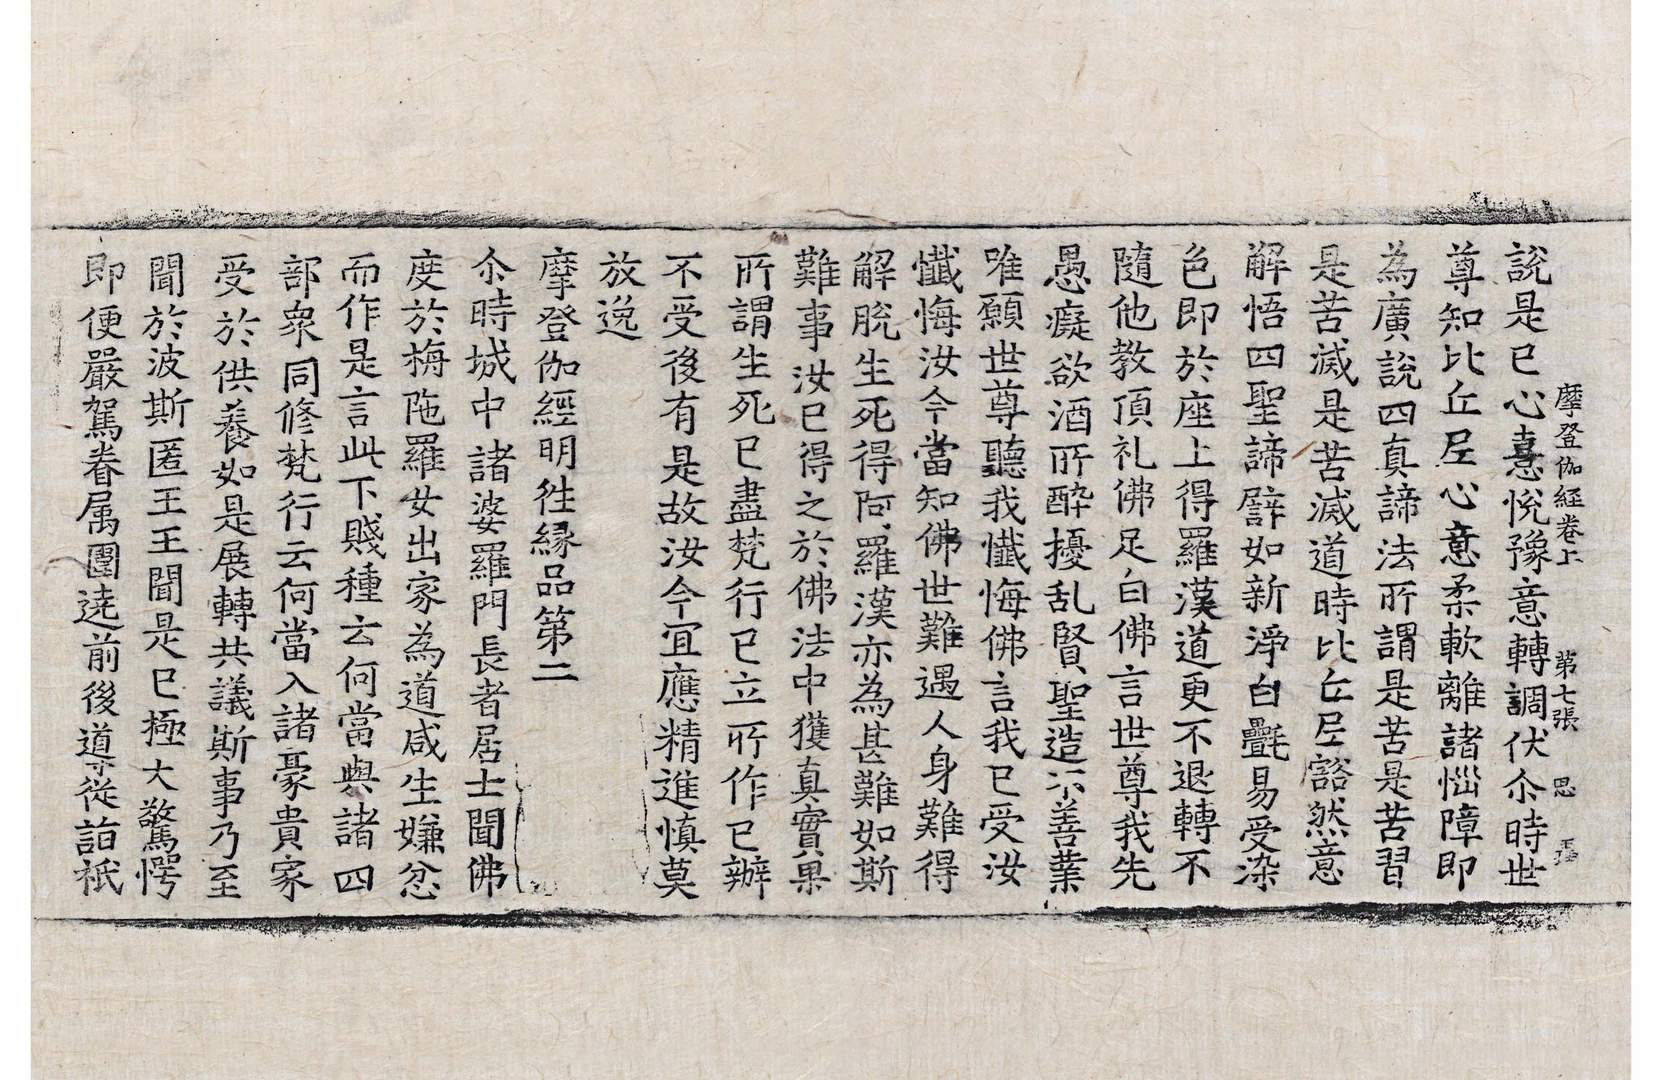 摩登伽經卷上 第七張 思
說是已心憙悅豫意轉調伏尒時世
尊知比丘尼心意柔軟離諸惱障即
為廣說四真諦法所謂是苦是苦習
是苦滅是苦滅道時比丘尼豁然意
解悟四聖諦譬如新淨白㲲易受染
色即於座上得羅漢道更不退轉不
隨他教頂礼佛足白佛言世尊我先
愚癡欲酒所醉擾乱賢聖造不善業
唯願世尊聽我懺悔佛言我已受汝
懺悔汝今當知佛世難遇人身難得
解脫生死得阿羅漢亦為甚難如斯
難事汝已得之於佛法中獲真實果
所謂生死已盡梵行已立所作已辦
不受後有是故汝今宜應精進慎莫
放逸
摩登伽經明徃緣品第二
尒時城中諸婆羅門長者居士聞佛
度於栴陁羅女出家為道咸生嫌忿
而作是言此下賤種云何當與諸四
部衆同修梵行云何當入諸豪貴家
受於供養如是展轉共議斯事乃至
聞於波斯匿王王聞是已極大驚愕
即便嚴駕眷属圍遶前後導從詣祇